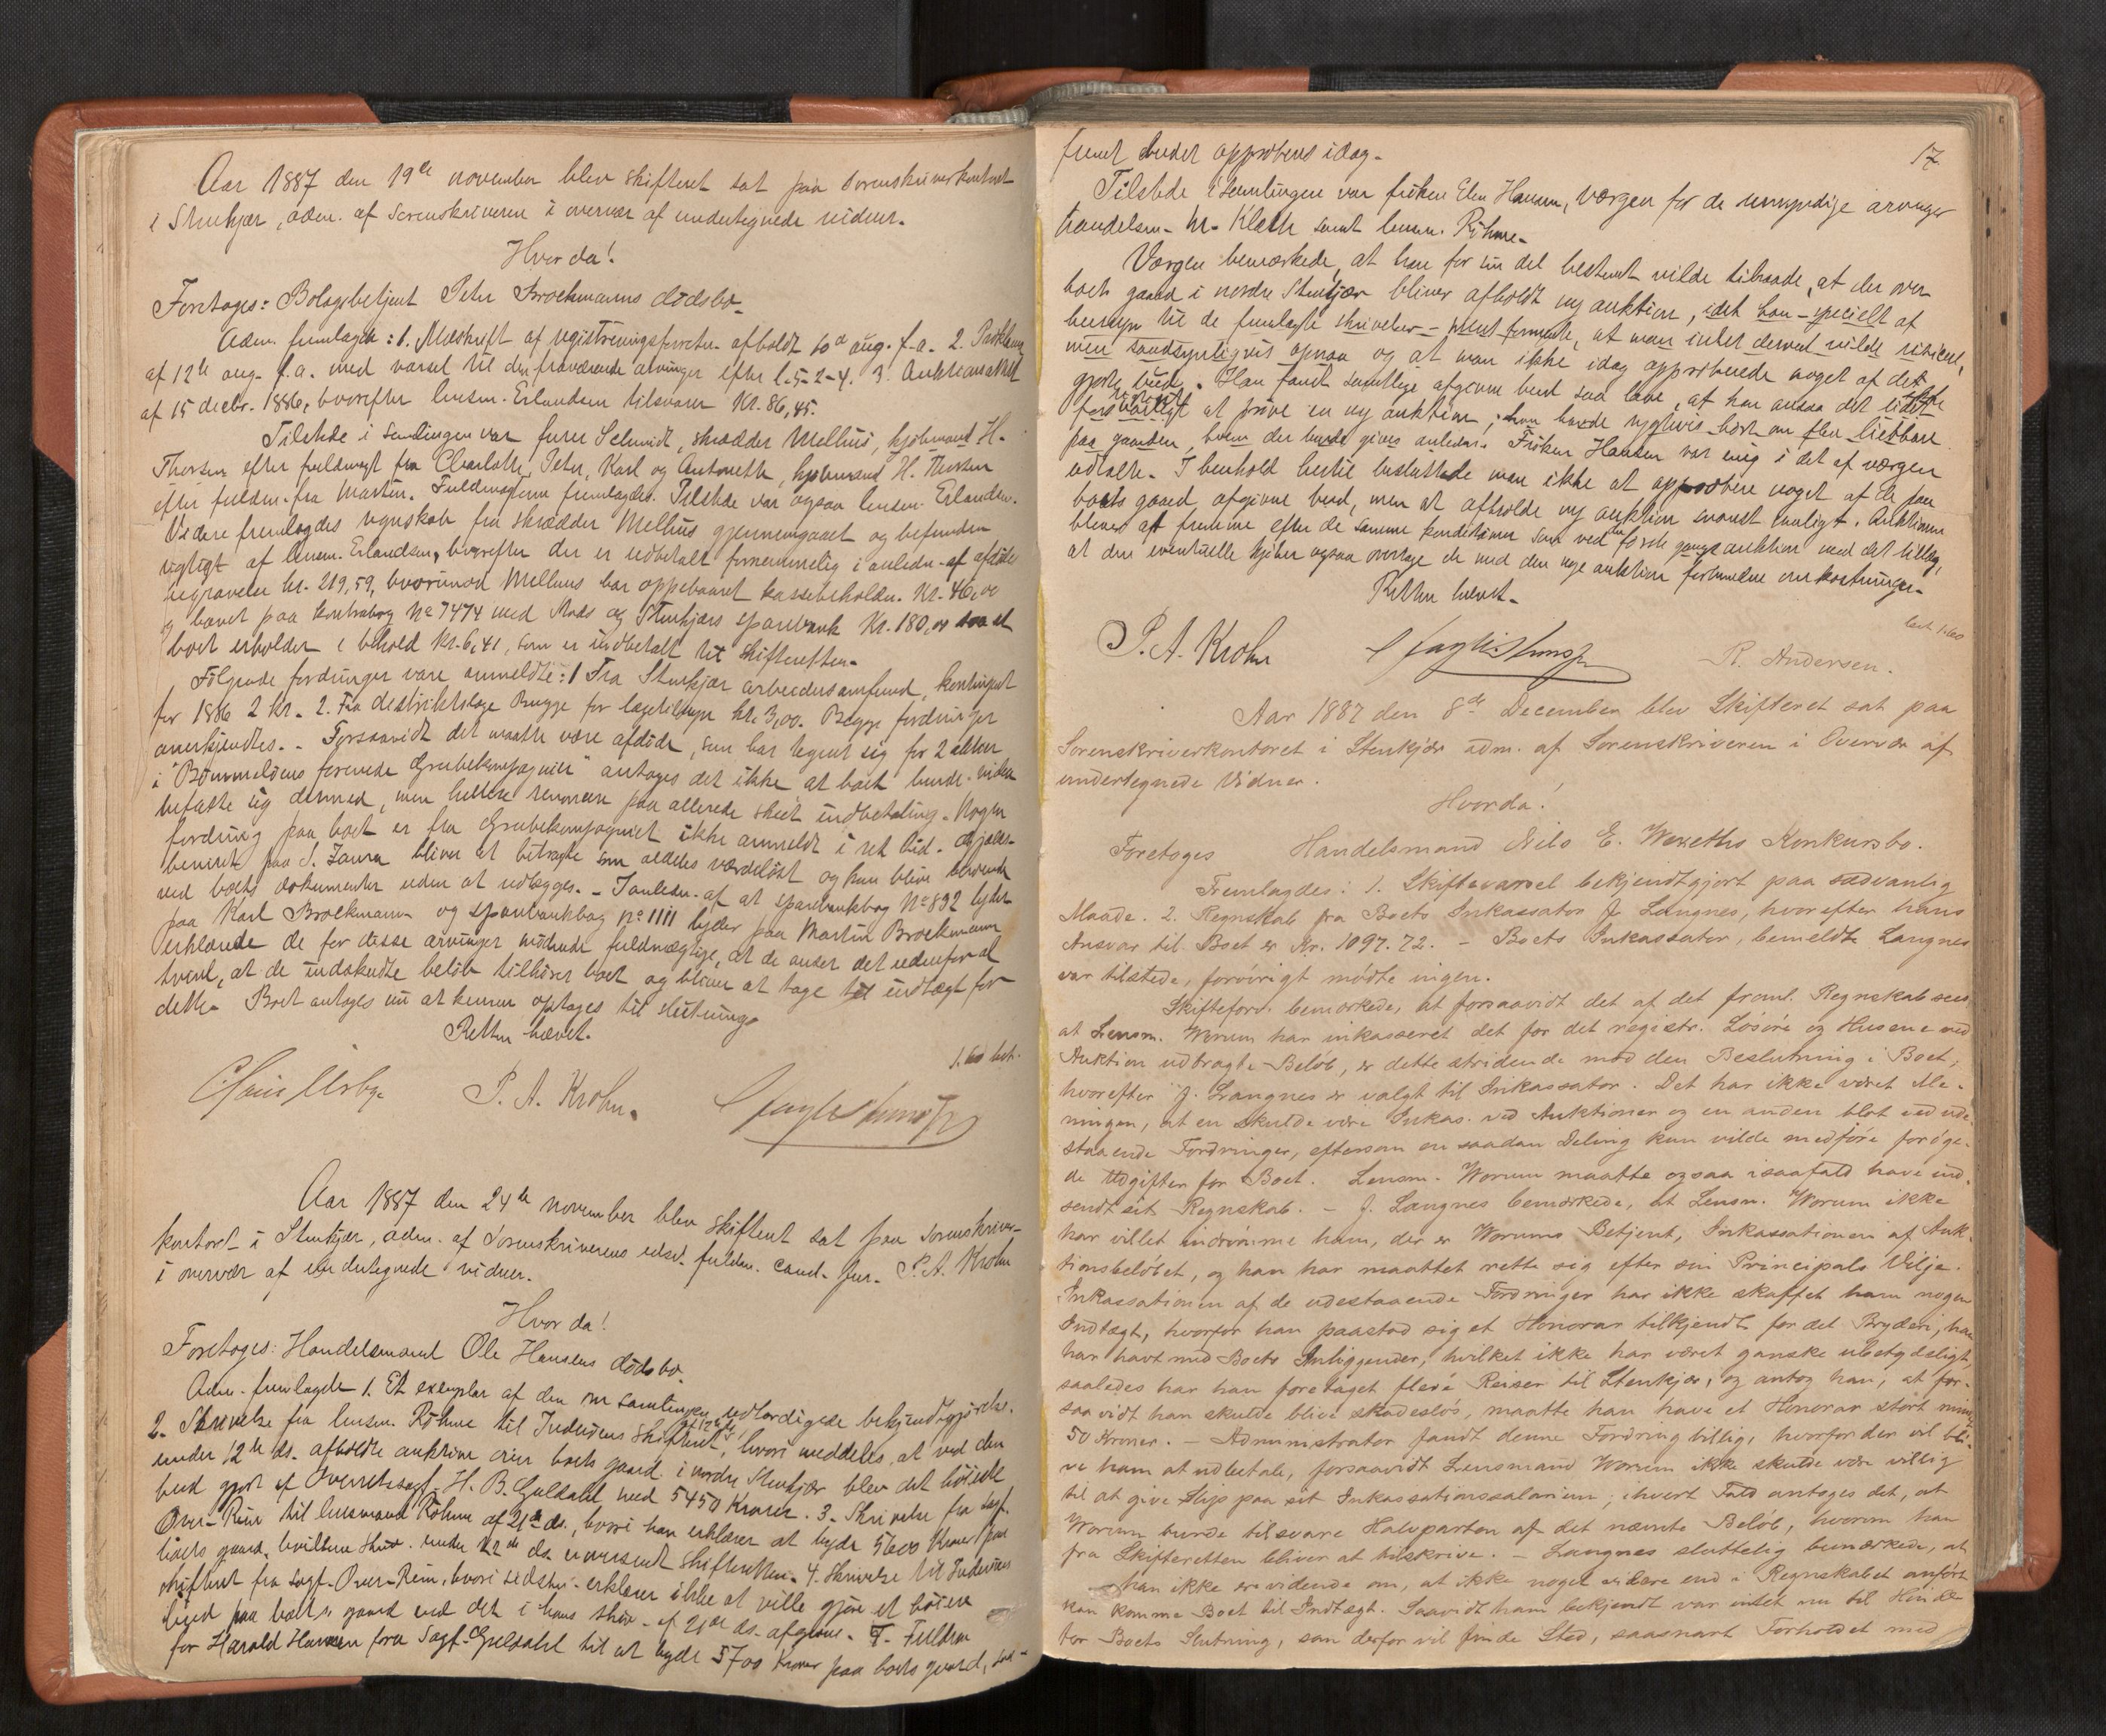 Aar 1887 den 19de november blev skifteret sat paa sorenskriverkontoret
i Stenkjær, adm. af sorenskriveren i overvær af undertegnede vidner.
Hvorda!
Foretoges: Bolagsbetjent Peter Brockmanns dødsbo.
Adm. fremlagde: 1. Udskrift af registreringsforretn. afholdt 10de aug. f.a. 2. Proklama
af 12te aug. f.a. med varsel til de fraværende arvinger efter l. 5-2-4. 3. Auktionsakket
af 15 decbr. 1886, hvorefter lensm. Erlandsen tilsvarer Kr. 86,45.
Tilstede i samlingen var furer Schmidt, skrædder Melhus, kjøbmand H.
Thorsen efter fuldmagt fra Charlotte, Peter, Karl og Antonette, kjøbmand H. Thorsen
efter fuldm. fra Martin. Fuldmagterne fremlagdes. Tilstede var ogsaa lensm. Erlandsen.
Videre fremlagdes regnskab fra skrædder Melhus gjennemgaaet og befunden
rigtigt af lensm. Erlandsen, hvorefter der er udbetalt fornemmelig i anledn. af afdødes
begravelse kr. 219,59, hvorimod Melhus har oppebaaret kassebeholdn. Kr. 46,00
og hævet paa kontrabog No 7474 med Stods og Stenkjærs sparebank Kr. 180,00 saa at
boet erholder i behold Kr. 6,41, som er indbetalt til skifteretten.
Følgende fordringer vare anmeldte: 1 Fra Stenkjær arbeidersamfund, kontingent
for 1886 2 kr. 2. Fra distriktslæge Brugge for lægetilsyn kr. 3,00. Begge fordringer
anerkjendtes. - Forsaavidt det maatte være afdøde, som har tegnet sig for 2 aktier
i "Bømmeløens forenede Grubekompagnier" antages det ikke at boet burde videre
befatte sig dermed, men hellere renoncere paa allerede skeet indbetaling. Nogen
fordring paa boet er fra Grubekompagniet ikke anmeldt i ret tid. Gjælds-
beviset paa S. Zaura bliver at betragte som aldeles værdiløst og kan blive beroende
ved boets dokumenter uden at udlægges. - I anledn. af at sparebankbog No 892 lyder
paa Karl Brockmann og sparebankbog no 1111 lyder paa Martin Brockmann
erklærede de for disse arvinger mødende fuldmægtige, at de anser det udenfor al
tvivl, at de indskudte beløb tilhører boet og bliver at tage til indtægt for
dette. Boet antages nu at kunne optages til slutning.
Retten hævet.
1.60 bet.
P. A. Krohn.
Aar 1887 den 24de november blev skifteret sat paa sorenskriver-
kontoret i Stenkjær, adm. af sorenskriverens edsv. fuldm. cand. jur. P. A. Krohn
i overvær af undertegnede vidner.
Hvorda!
Foretoges: Handelsmand Ole Hansens dødsbo.
Adm. fremlagde 1. Et exemplar af den om samlingen udfærdigede bekjendtgjørelse.
2. Skrivelse fra lensm. Röhme til Inderøens skifteret, hvori meddeles, at ved den
under 12te ds. afholdte auktion over boets gaard i nordre Stenkjær blev det høieste
bud gjort af Overretssagf. H. B. Guldahl med 5450 Kroner. 3. Skrivelse fra sagf.
Over-Rein til lensmand Röhme af 21de ds., hvori han erklærer at byde 5600 Kroner paa
boets gaard, hvilken skriv. under 22de ds. er oversendt skifteretten. 4. Skrivelse til Inderøens
skifteret fra sagf. Over-Rein, hvori sidstn. erklærer ikke at ville gjøre et høiere
bud paa boets gaard end det i hans skriv. af 21de ds. afgivne. 5. Fuldm.
for Harald Hansen fra Sagf. Guldahl til at byde 5700 Kroner paa boets gaard, saa-
17.
fremt budet approberes idag.
Tilstede i samlingen var frøken Elen Hansen, værgen for de umyndige arvinger
handelsm. Hr. Klæth samt lensm. Röhme.
Værgen bemærkede, at han for sin del bestemt vilde tilraade, at der over
boets gaard i nordre Stenkjær bliver afholdt ny auktion, idet han - specielt af
hensyn til de fremlagte skrivelser - mest formente, at man intet derved vilde risikere,
men sandsynligvis opnaa og at man ikke idag approberede noget af de
gjorte bud. Han fandt samtlige afgivne bud saa lave, at han ansaa det ikke
forsvarligt at prøve en ny auktion; han havde rygtevis hørt om flere liebhavere
paa gaarden, hvem der burde gives anledn. Frøken Hansen var enig i det af værgen
udtalte. I henhold hertil besluttede man ikke at approbere noget af de paa
boets gaard afgivne bud, men at afholde ny auktion snarest muligt. Auktionen
bliver at fremme efter de samme konditioner som ved første gangs auktion med det tillæg,
at den eventuelle kjøber ogsaa overtage de med den nye auktion forbundne omkostninger.
Retten hævet.
bet. 1.60
P. A. Krohn
R. Andersen.
Aar 1887 den 8de December blev Skifteret sat paa
Sorenskriverkontoret i Stenkjær adm. af Sorenskriveren i Overvær af
undertegnede Vidner.
Hvorda!
Foretoges Handelsmand Nils E. Wexeths Konkursbo.
Fremlagdes: 1. Skiftevarsel bekjendtgjort paa sædvanlig
Maade. 2. Regnskab fra Boets Inkassator J. Langnes, hvorefter hans
Ansvar til Boet er Kr. 1097.72. - Boets Inkassator, bemeldte Langnes
var tilstede, forøvrigt mødte ingen.
Skifteforv. bemærkede, at forsaavidt det af det freml. Regnskab sees
at Lensm. Worum har inkasseret det for det registr. Løsøre og Husene ved
Auktion udbragte Beløb, er dette stridende mod den Beslutning i Boet,
hvorefter J. Langnes er valgt til Inkassator. Det har ikke været Me-
ningen, at en skulde være Inkas. ved Auktioner og en anden blot ved ude-
staaende Fordringer, eftersom en saadan Deling kun vilde medføre forøge-
de Udgifter for Boet. Lensm. Worum maatte ogsaa isaafald have ind-
sendt sit Regnskab. - J. Langnes bemærkede, at Lensm. Worum ikke
har villet indrømme ham, der er Worums Betjent, Inkassationen af Auk-
tionsbeløbet, og han har maattet rette sig efter sin Principals Vilje.
Inkassationen af de udestaaende Fordringer har ikke skaffet ham nogen
Indtægt, hvorfor han paastod sig et Honorar tilkjendt for det Bryderi, han
har havt med Boets Anliggender, hvilket ikke har været ganske ubetydeligt,
saaledes har han foretaget flere Reiser til Stenkjær, og antog han, at for-
saavidt han skulde blive skadesløs, maatte han have et Honorar stort mindst
50 Kroner. - Administrator fandt denne Fordring billig, hvorfor der vil bli-
ve ham at udbetale, forsaavidt Lensmand Worum ikke skulde være villig
til at give Slip paa sit Inkassationssalarium; ihvert Fald antages det, at
Worum burde tilsvare Halvparten af det nævnte Beløb, hvorom han
fra Skifteretten bliver at tilskrive. - Langnes sluttelig bemærkede, at
han ikke er vidende om, at ikke noget videre end i Regnskabet anført
kan komme Boet til Indtægt. Saavidt ham bekjendt var intet nu til Hinder
for Boets Slutning, som derfor vil finde Sted, saasnart Forholdet med